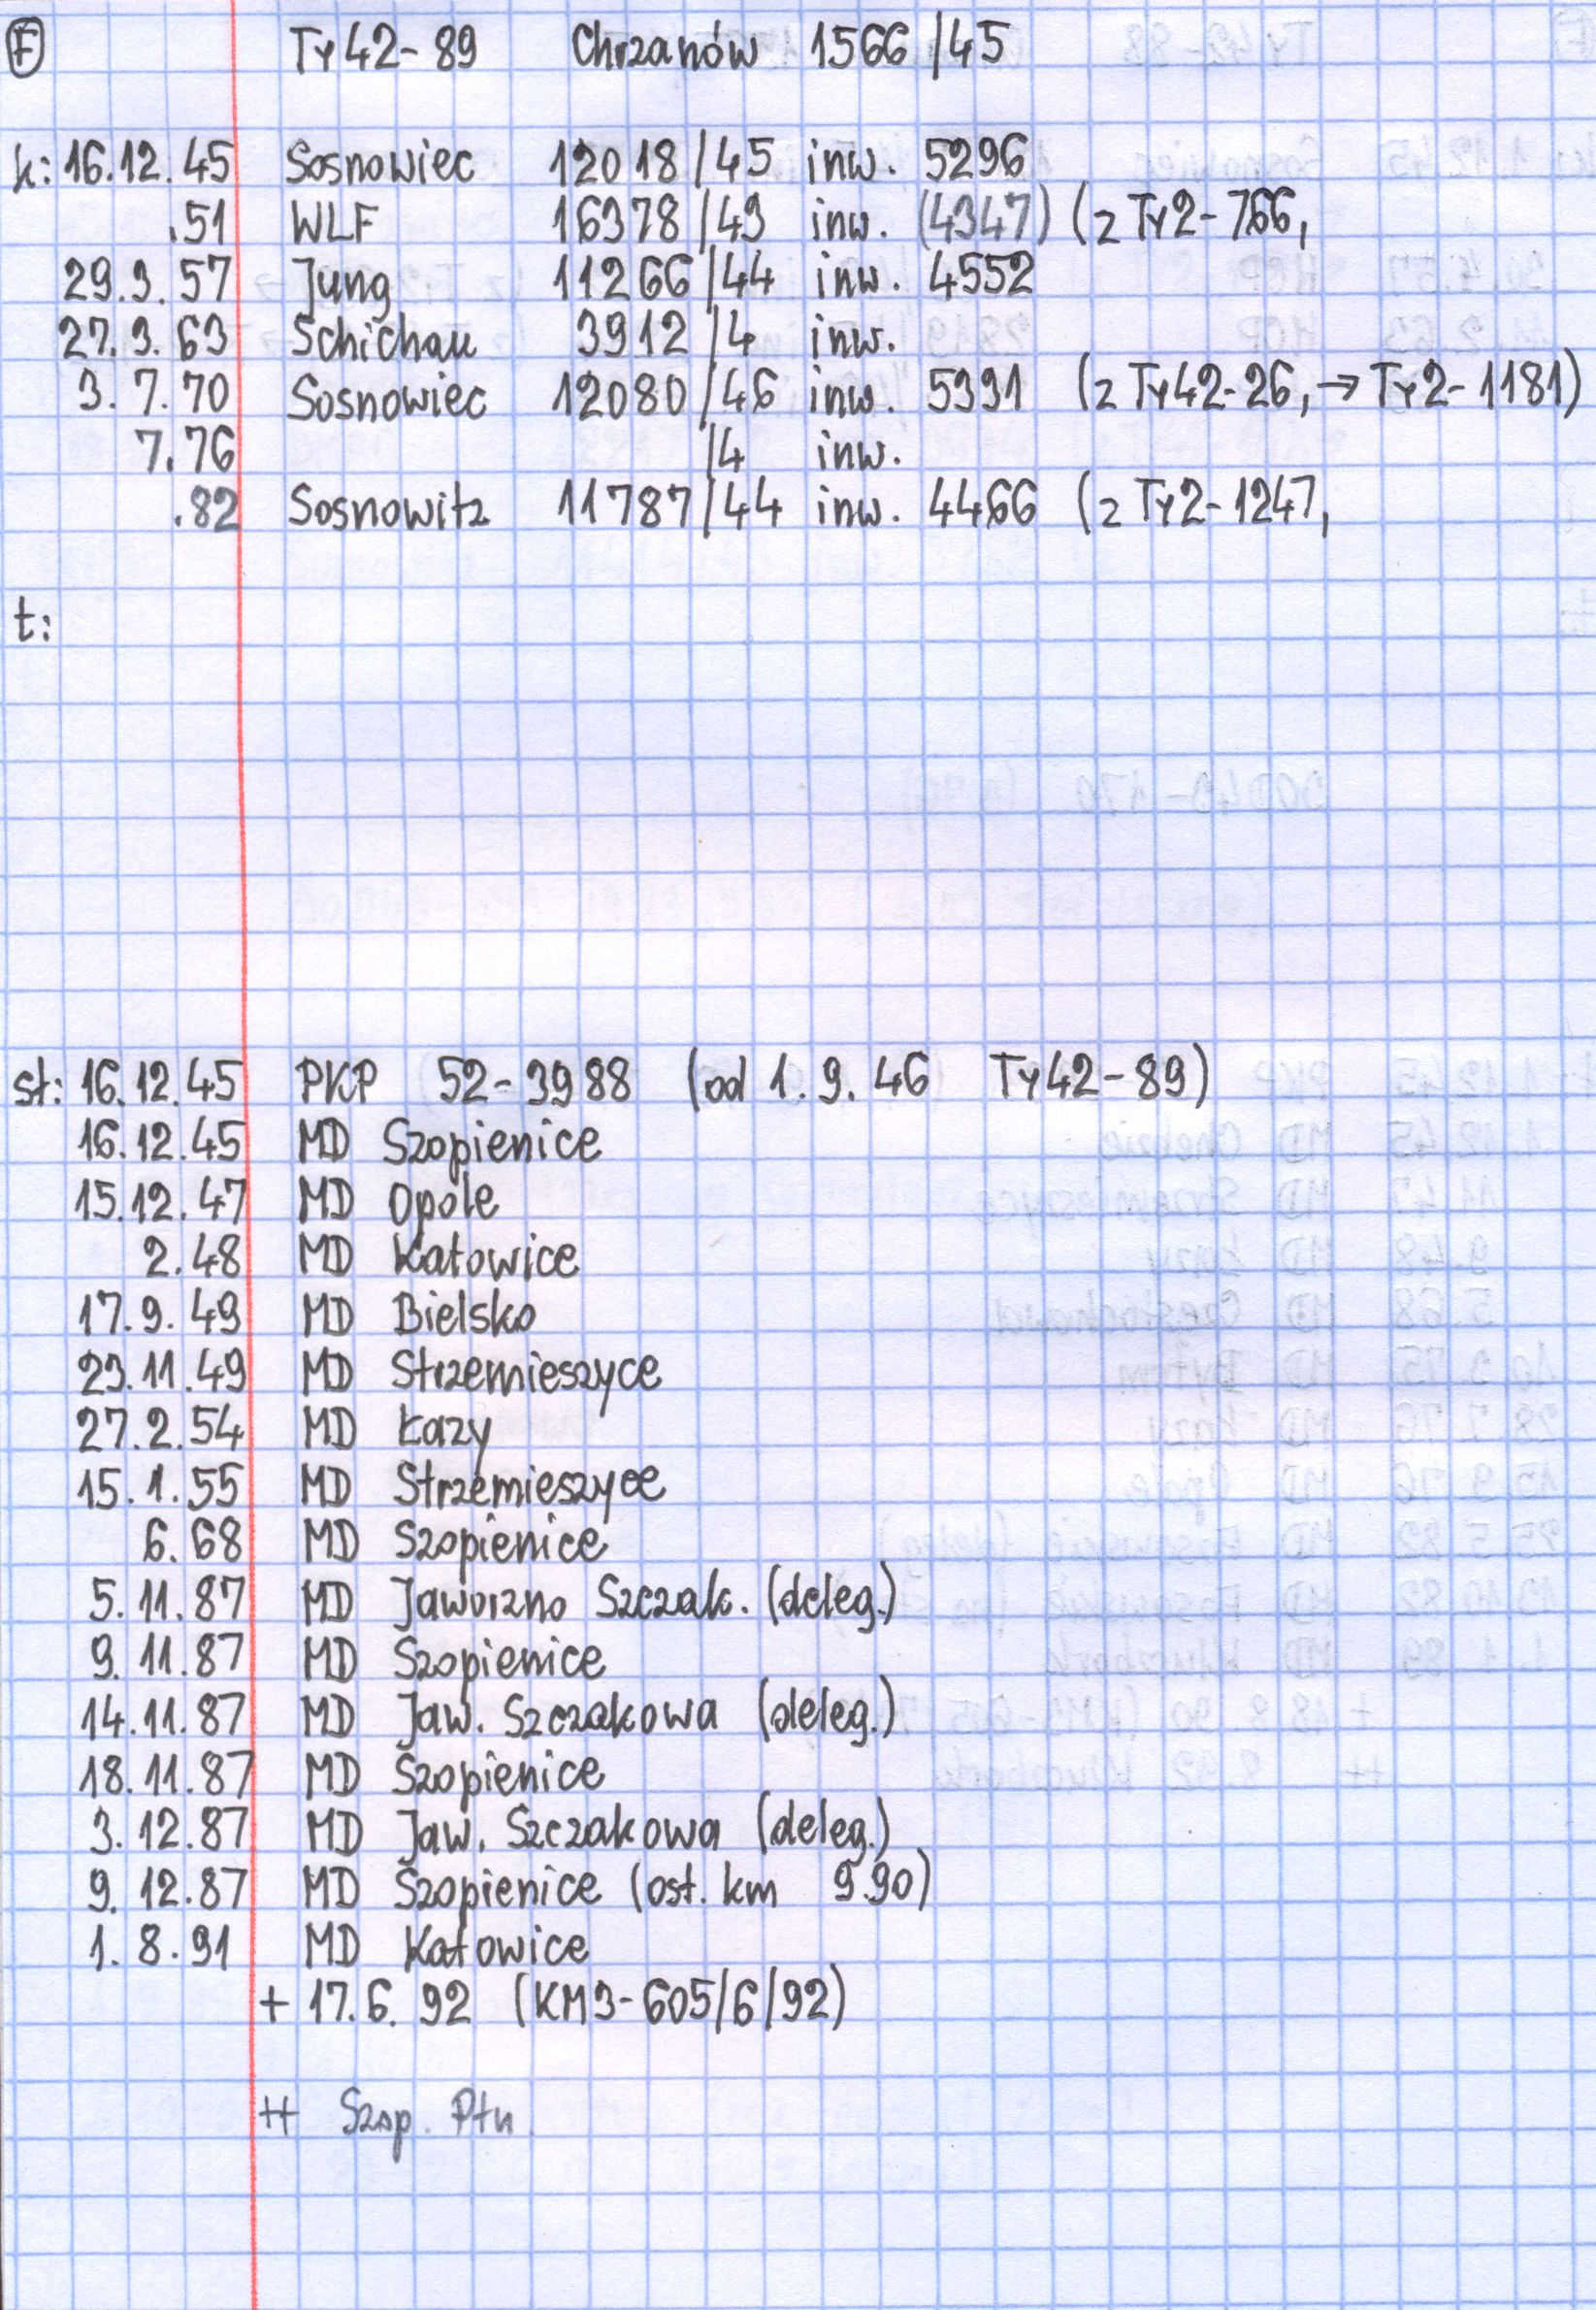 F Ty42-89 Chrzanów 1566/45
k: 16.12.45 Sosnowiec 12018/45 inw. 5296
.51 WLF 16378/43 inw. (4347) (z Ty2-766,
29.3.57 Jung 11266/44 inw. 4552
27.3.63 Schichau 3912/4 inw.
3.7.70 Sosnowiec 12080/46 inw. 5331 (z Ty42-26, → Ty2-1181)
7.76 /4 inw.
.82 Sosnowitz 11787/44 inw. 4466 (z Ty2-1247,
t:
st: 16.12.45 PKP 52-3988 (od 1.9.46 Ty42-89)
16.12.45 MD Szopienice
15.12.47 MD Opole
2.48 MD Katowice
17.9.49 MD Bielsko
23.11.49 MD Strzemieszyce
27.2.54 MD Łazy
15.1.55 MD Strzemieszyce
6.68 MD Szopienice
5.11.87 MD Jaworzno Szczak. (deleg.)
9.11.87 MD Szopienice
14.11.87 MD Jaw. Szczakowa (deleg.)
18.11.87 MD Szopienice
3.12.87 MD Jaw. Szczakowa (deleg.)
9.12.87 MD Szopienice (ost. km 9.90)
1.8.91 MD Katowice
+ 17.6.92 (KM3-605/6/92)
++ Szop. Płn